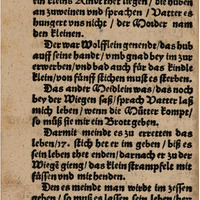 an zuweinen vnd sprachen / Vatter es
hungert vns nicht / der Mörder nam
den kleinen.
Der war Wölfflein genende / das hub
auff seine handt / vmb gnad bey im zur
erwerben / vnd bab auch für das kindle
klein / von fünff stichen must es sterben.
Das ander Meidlein was / das noch
bey der Wiegen saß / sprach Vatter laß
mich leben / wenn die Mütter kompt /
so müß sie mir ein Brott geben.
Darmit meinde es zu erretten das
leben / 17. stich het er im geben / biß es
sein leben thet enden / darnach er zu der
Wiegē gieng / das klein strampfelt mit
füssen vnd mit henden.
Den es meinde man wirdt im zissen
geben / so muß es lassen sein leben / der